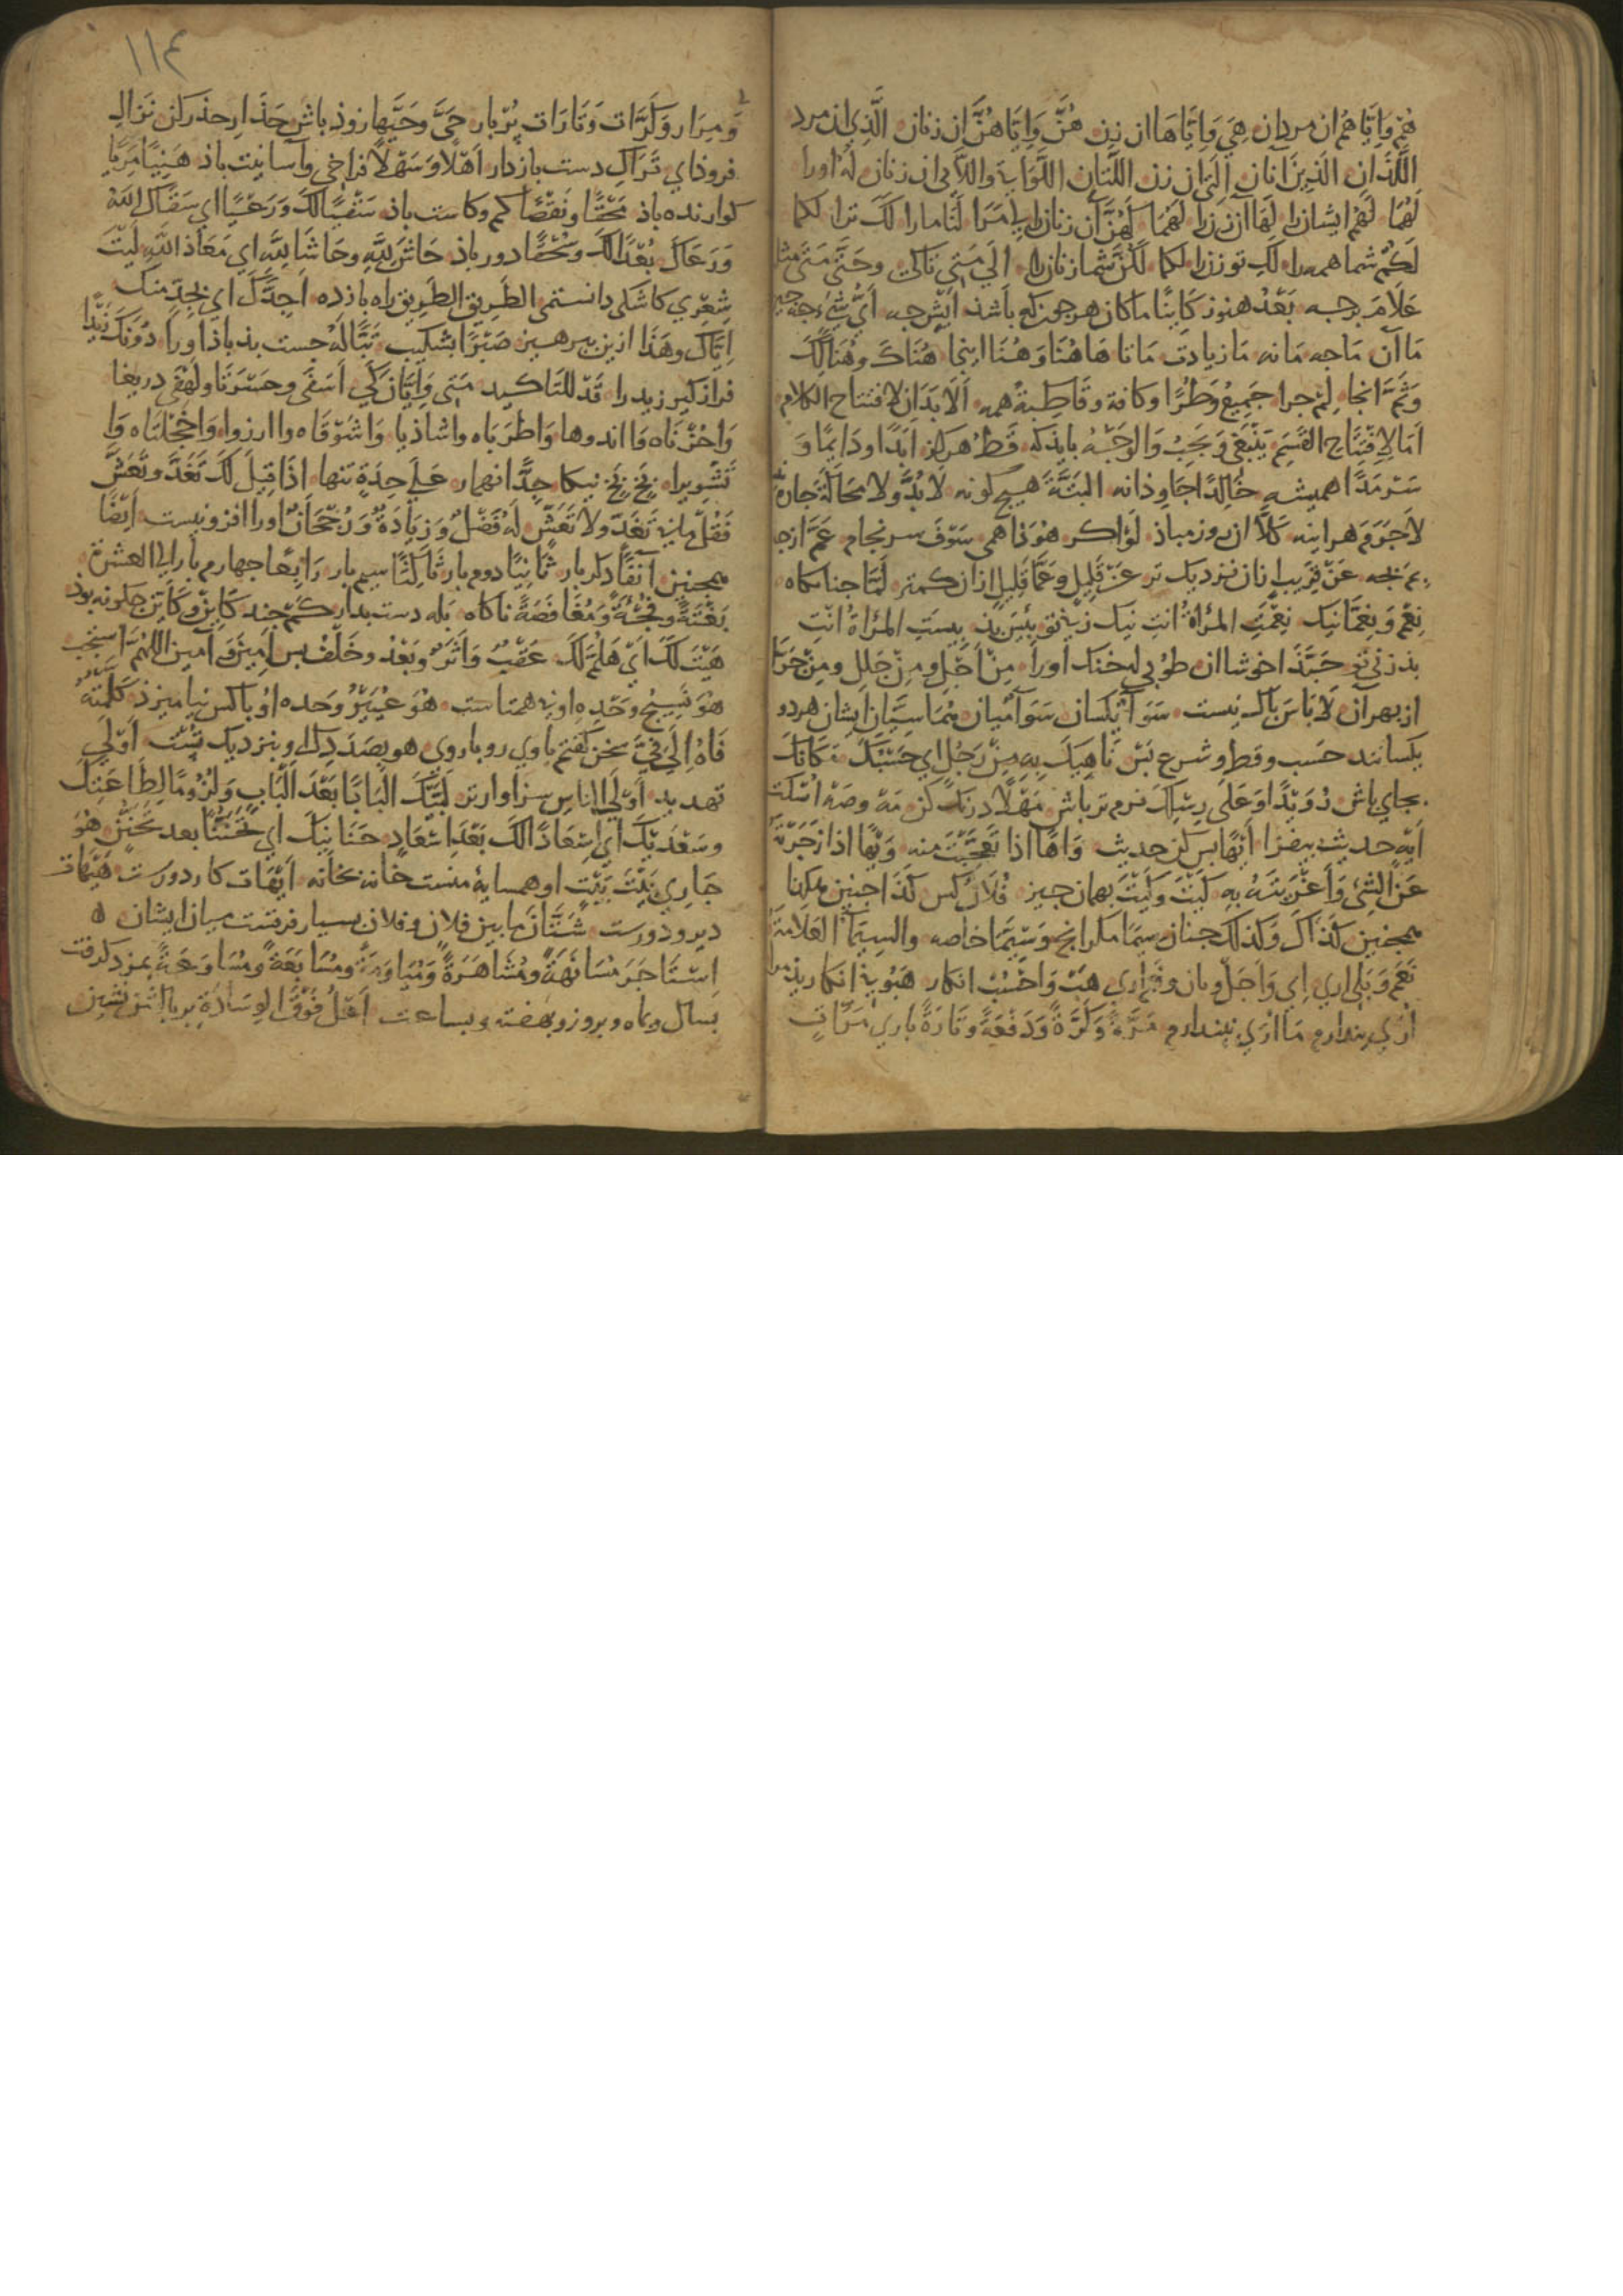 هُمْ وَاِيَّا هُمْ ان مردان هِيَ وَاِيَّاهَا ان زن هُنَّ وَاِيَّاهُنَّ ان زنان الَّذِي ان مرد
اللَّذَانِ الَّذِينَ آنان الَّتِي ان زن اللَّتَانِ اللَّوَاتي واللَّاتي ان زنان لَهُ اورا
لَهُمَا لَهُمْ ايشانرا لَهَا آن زن را لَهُمَا لَهُنَّ آن زنانرا لِي مَرَا لَنَا مارا لَكَ ترا لكما
لَكُمْ شما همه را لَكِ تو زنرا لكما لَكُنَّ شما زنانرا اِلَي مَتَي تاكي وحَتَّى مَتَى مثله
عَلَامَ برجه بَعْدُ هنوز كَائِنًا ماكان هرجون كه باشذ اَيْش جه اَيُّ شَيْءٍ جه جيز
مَا آن مَا جه مَا نه مَا زيادت مَا تا هَاهُنَا وَهُنَا اينجا هُنَاكَ وهُنَالِكَ
وَثَمَّ آنجا لِمَ جرا جَمِيعُ وَطُرًّا وكافة وقَاطِبةً همه اَلَا بَدَان لافتتاح الكلام
اَمَا لافْتِتَاح القَسَمِ يَنْبَغي وَيَجِبُ وَالوَجْهُ بايذكه قَطُّ هركز اَبَدًا ودَايِمًا وَ
سَرْمَدًا هميشه خَالِدًا جاوذانه البَتَّةَ هيج كونه لَا بُدَّ ولا مَحَالَةَ جاره نيست
لاجَرَمَ هراينه كَلَّا ان روز مباذ لَوْ اكر هُوَذَا همى سَوْفَ سرنجام عَمَّ ازجه
بِمَ بجه عَنْ قَرِيبٍ ازان نزديك تر عَنْ قَلِيلٍ وَعَمَّا قَلِيلٍ ازان كمتر لَمَّا جناكاه
نِعْمَ وَنِعِمَّا نيك نِعْمَتِ المرْاَةُ انتِ نيك زني تو بِئْسَ بذ بِيسَتِ المرْاَةُ انْتِ
بذ زني تو حَبَّذَا خوشا ان طُوبي له خنك اورا مِنْ اَجْلِ ومِنْ جَلَلِ ومِنْ جَرَّا
از بهر آن لَا بَاسَ باك نيست سَوَآءٌ يكسان سَوَآءٌ ميان هُمَا سِيَّانِ ايشان هردو
يكسانند حَسب وقط وشرع بَسْ نَاهِيكَ بِهِ مِنْ رَجُلٍ اي حَسْبُكَ مَكَانَكَ
بجاي باش رُوَيْدًا وَعَلَى رِسْلِكَ نرم تر باش مَهْلًا درنك كن مَهْ وصَهْ اُسْكت
اِيْهِ حديث بيفزا اَيْهًا بس كن حديث وَاهًا اذا تَعَجَّبْتَ منه وَيْهًا اذا زجَرْتَهُ
عَنِ الشَّيْ وَاَغْرَيتَهُ بِهِ كَيْتَ وكَيْتَ بهمان جيز فُلَانٌ كس كَذَا جنين هكذا
همجنين كذَاكَ وَكَذلكَ جنان سِيمَا مكرانج وَسِيَّمَا خاصه والسِيمَآءُ العَلَامَةُ
نَعَمْ وَبَلَى اري اِي وَاَجَلْ وبان وجَيْرِ اري هَبْ وَاحْسُبْ انكار هَبُوني انكاريذمرا
اُرَي پندارم مَا اُرَي نپندارم مَرَّةً وَكَرَّةً وَدَفْعَةً وتَارَةً باري مَرَّاتٍ
١١٤
وَمِرَار وَكَرَّات وَتَارَات پُرْبار حَيَّ وحَيَّهَلَ زوذ باش حَذَارِ حذر كن نَزَالِ
فروذاي تَرَاكِ دست بازدار اَهْلًا وَسَهْلًا فراخي وآسانيت باذ هَنِيًا مَرِيًّا
كوارنده باذ مَحْقًا ونَقْصًا كم وكاست باذ سَقْيًا لَكَ وَرَعْيًا اي سَقَاكَ اللهُ
وَرَعَاكَ بُعْدًا لَكَ وسُحْقًا دور باذ حَاشَ لِلّهِ وحَاشَا لِلّهِ اي مَعَاذَ اللهِ لَيْتَ
شِعْرِي كاشكي دانستمى الطَريق الطَرِيق راه باز ده اَجِدَّكَ اي بِجِدٍّ مِنكَ
اِيَّاكَ وهَذَا ازين بپرهيز صَبْرًا بشكيب تَبًّا لَهُ جست بذ باذ اورا دُونَكَ زَيْدًا
فراز كير زيد را قَدْ للتَاكيد مَتَي وَاَيَّانَ كَي اَسَفَى وحَسْرَتَا ولَهْفَى دريغا
وَاحُزْنَاه وَا اندوها وَاطَرَبَاه واشاذيا وَاشَوْقَاه وا ارزوا وَاخَجْلَتَاه وَا
تَشْوِيرا بَخٍ بَخٍ نيكا جِدًّا انهمار عَلَي حِدَةٍ تنها اذَا قِيلَ لَكَ تَغَدَّ وتَعَشَّ
فَقُلْ مَابي تَغَدٍّ ولَا تَعَشٍّ لَهُ فَضْلٌ وَزِيَادَةٌ وَرُجْحَانٌ اورا افزونيست اَيْضًا
همجنين آنِفًا دكر بار ثَانِيًا دوم بار ثَالِثًا سيم بار رَابِعًا جهارم بار الي العشرة
بَغْتَةً وفَجْئَةً وَمُغَافَصَةً ناكاه بَلهَ دست بدار كَمْ جند كَاَيِّنْ وكَائِنْ جكونه بوذ
هَيْتَ لَكَ اَيْ هَلُمَّ لَكَ عَقْبُ وَاَثَرُ وبَعْدُ وخَلْفُ پس اَمِينَ وَآمين اللهُمَّ استجب
هُوَ نَسِيجُ وَحْدِهِ او بي همتاست هُوَ عُيَيْرُ وَحده اوُ باكس نياميزذ كَلَّمْتُه
فَاهُ اِلَي فِيَّ سخن كفتم با وي رو باروي هو بصَدَدِ ذلك او بنزديك تُسْت اَوْلَي
تهديد اَوْلَي الناسِ سزاوارتر لَبَّيْكَ اَلْبَابًا بَعْدَ اَلْبَابٍ وَلُزُومًا لِطَاعَتِكَ
وسَعْدَيْكَ اي اِسْعَادًا لَكَ بَعْدَ اِسْعَادٍ حَنَانَيْكَ اي تَحَنُّنًا بعد تَحَنُّنٍ هُوَ
جَارِي بَيْتَ بَيْتَ او همسايهٔ منست خانه بخانه اَيْهَات كار دورست هَيْهَات
دير و دورست شَتَّانَ مابين فلان وفلان بسيار فرقست ميان ايشان ۵
اِسْتَاجَرَ مُسَانَهَةً ومُشَاهَرَةً وَمُيَاوَمَةً ومُسَابَعَةً ومُسَاوَعَةً بمزد كرفت
بسال وبماه وبروز وبهفته وبساعت اُعْلُ فَوْقَ الوِسَادَةِ بر بالش نشين